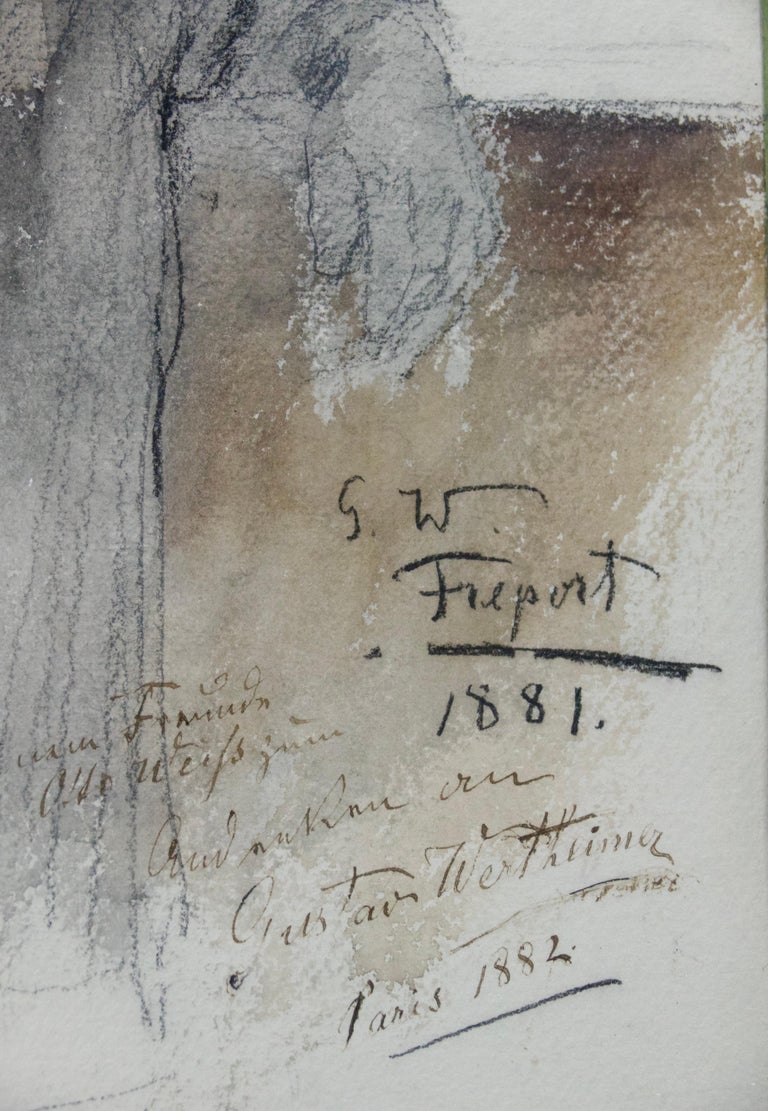 G. W.
Freport
1881.
nem Freunde
Otto Weiss zum
Andenken an
Gustav Wertheimer
Paris 1882.